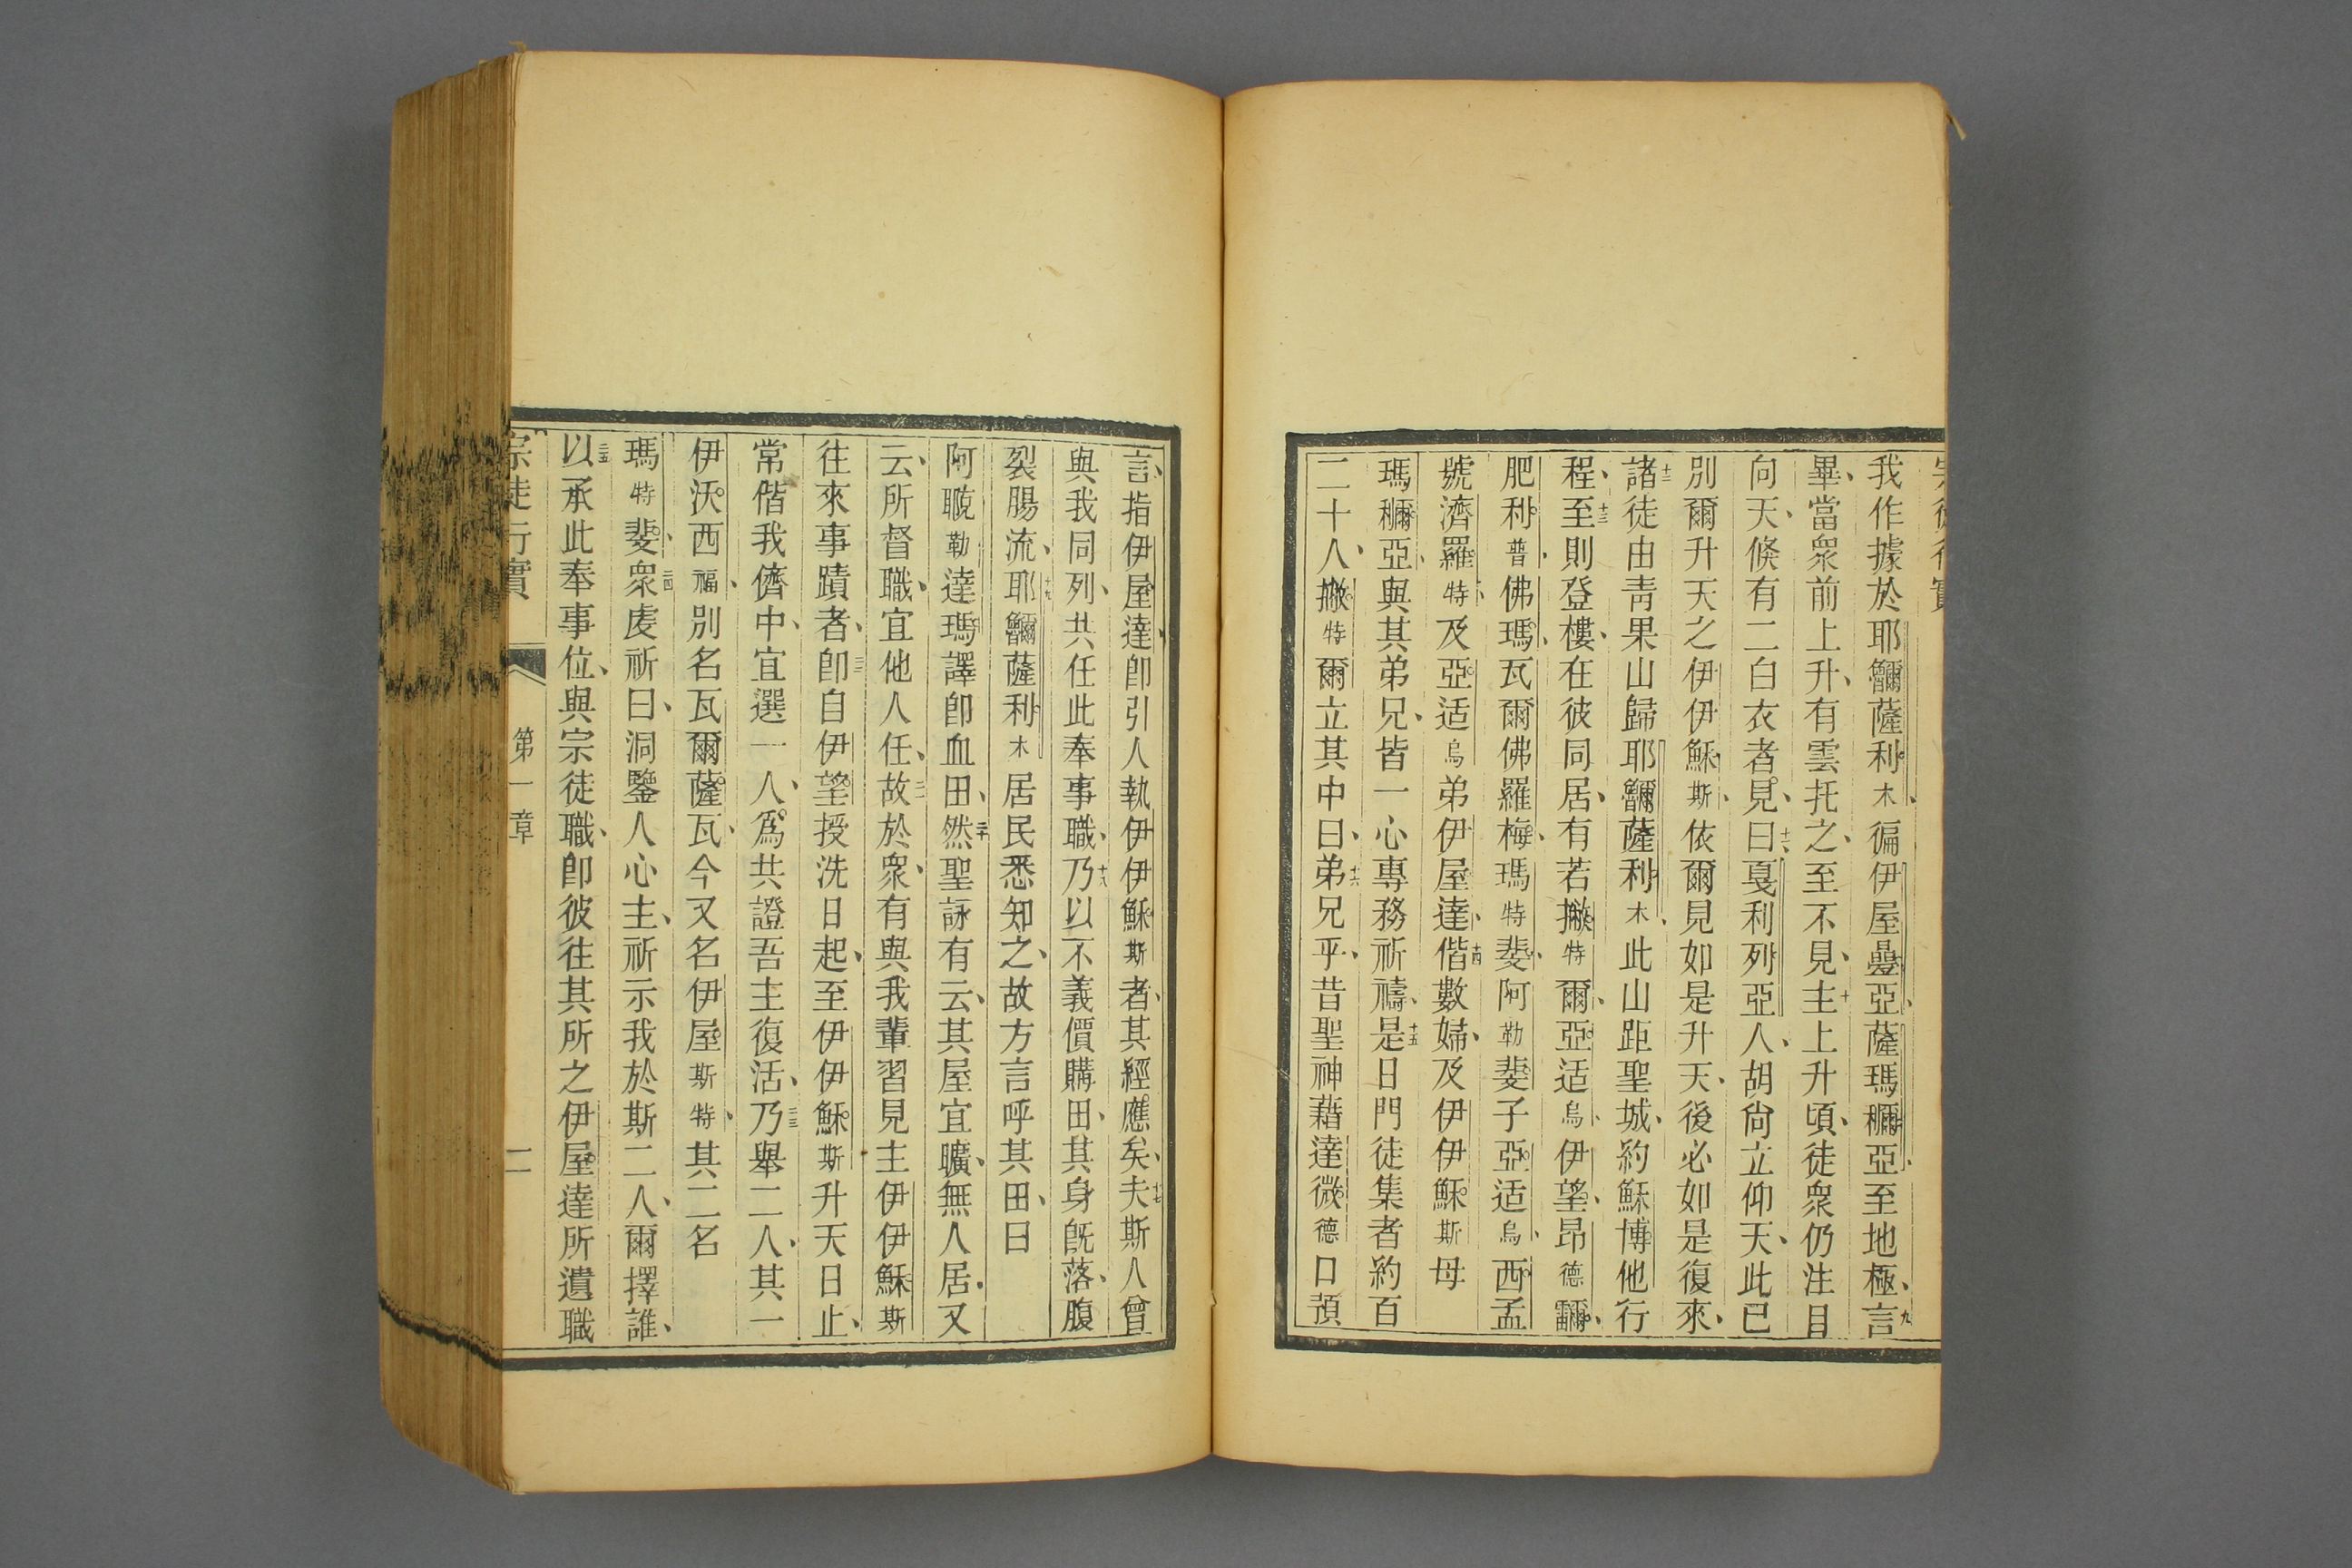 我作據於耶𬹃薩利木徧伊屋疊亞薩瑪穪亞至地極九言
畢當衆前上升有雲托之至不見十主上升頃徒衆仍注目
向天倐有二白衣者見十一曰戛利列亞人胡尙立仰天此已
別爾升天之伊伊穌斯依爾見如是升天後必如是復來
十二諸徒由靑果山歸耶𬹃薩利木此山距聖城約穌博他行
程十三至則登樓在彼同居有若撇特爾亞适烏伊望昂德
肥利普佛瑪瓦爾佛羅梅瑪特斐阿勒斐子亞适烏西孟
號濟羅特及亞适烏弟伊屋達十四偕數婦及伊伊穌斯母
瑪穪亞與其弟兄皆一心專務祈禱十五是日門徒集者約百
二十人撇特爾立其中曰十六弟兄乎昔聖神藉達微德口預
言指伊屋達卽引人執伊伊穌斯者其經應矣十七夫斯人曾
與我同列共任此奉事職十八乃以不義價購田其身旣落腹
裂腸流十九耶𬹃薩利木居民悉知之故方言呼其田曰
阿勒達瑪譯卽血田二十然聖詠有云其屋宜曠無人居又
云所督職宜他人任二一故於衆有與我輩習見主伊伊穌斯
往來事蹟者二二卽自伊望授洗日起至伊伊穌斯升天日止
常偕我儕中宜選一人爲共證吾主復活二三乃舉二人其一
伊沃西福別名瓦爾薩瓦今又名伊屋斯特其二名
瑪特斐二四衆虔祈曰洞鑒人心主祈示我於斯二人爾擇誰
二五以承此奉事位與宗徒職卽彼往其所之伊屋達所遺職
宗徒行實 第一章 二